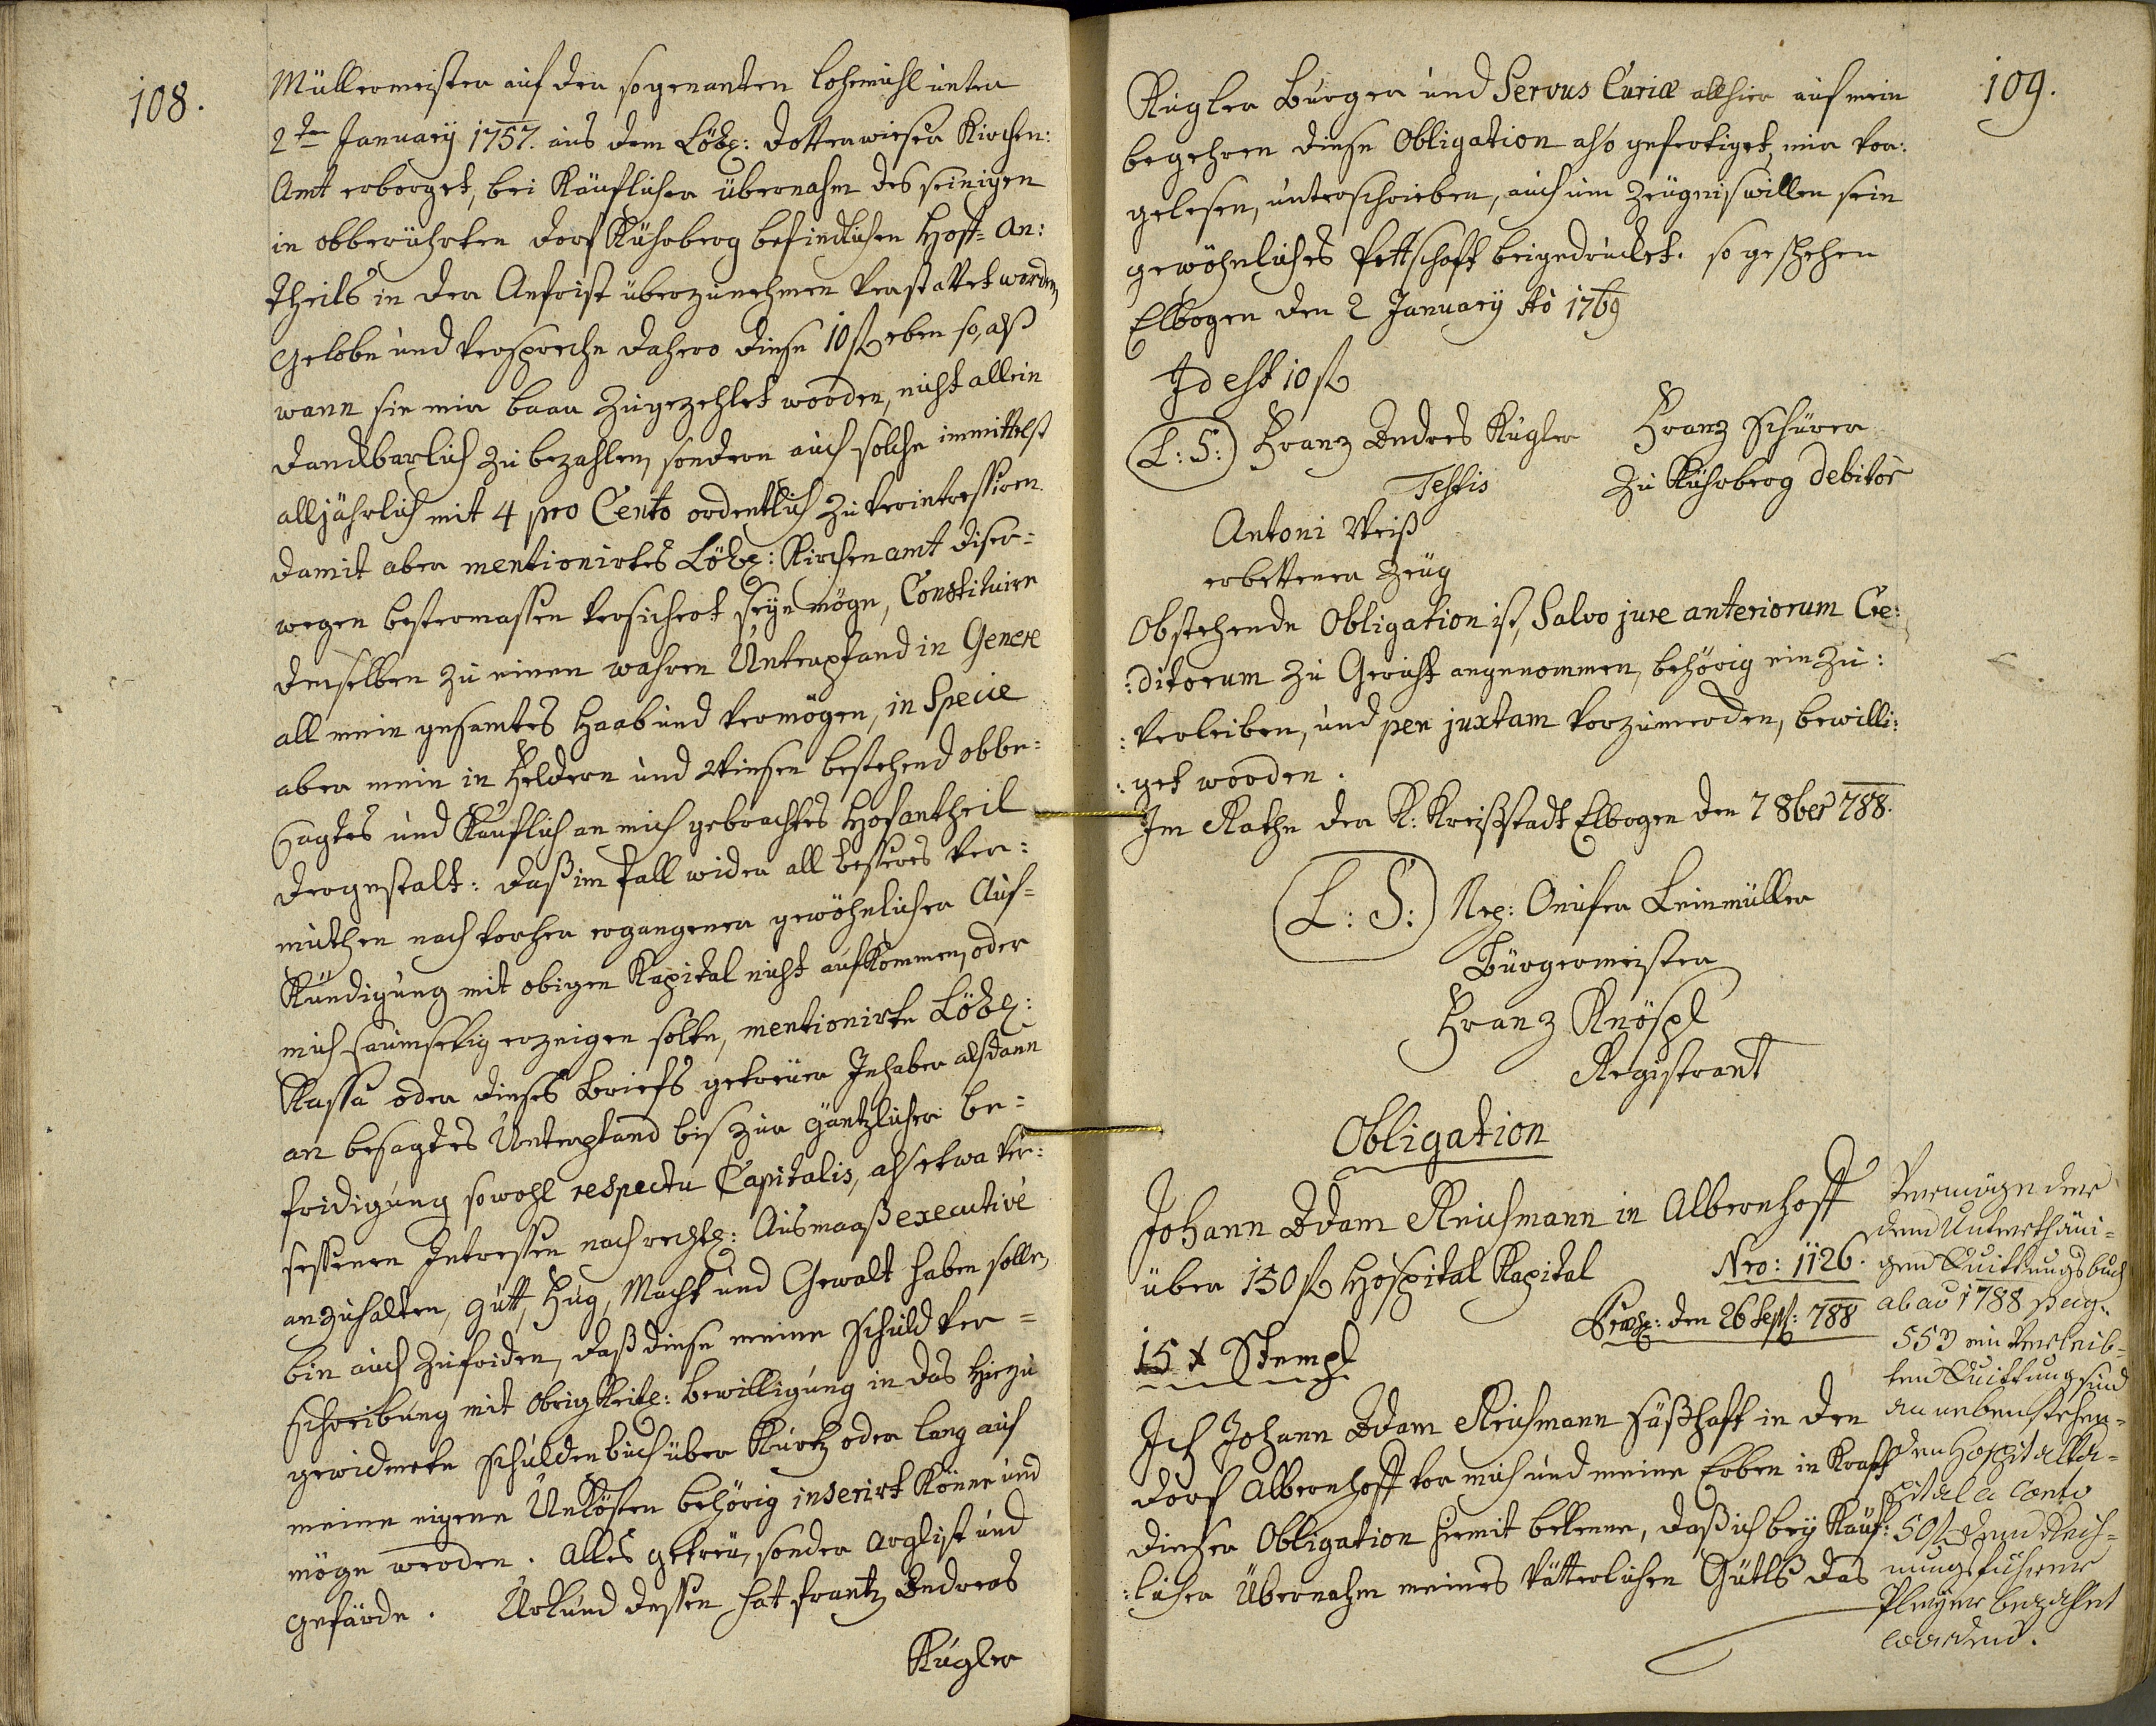 108.
Müllermeister auf der sogenanten Lohemühl unter
2ten January 1757. aus dem Löbl: Dotterwieser Kirchen:
Amt erborget, bei Käuflicher übernahm des seinigen
in obberührten Dorf Kührberg befindlichen Hoff= An:
theils in der Anfrist überzunehmen verstattet worden,
Gelobe und verspreche dahero diese 10 fl eben so, alß
wann sie mir baar zugezehlet worden, nicht allein
danckbarlich zu bezahlen, sondern auch solche immittelst
alljährlich mit 4 pro Cento ordentlich zu verintressiren.
damit aber mentionirtes Löbl: Kirchenamt diser=
wegen bestermassen versichert seyn möge, Constituire
demselben zu einen wahren Unterpfand in Genere
all mein gesamtes Haab und vermögen, in Specie
aber mein in Feldern und Wiesen bestehend obbe=
sagtes und Käuflich an mich gebrachtes Hofantheil
dergestalt: daß im fall wider all besseres ver=
muthen nach vorher ergangener gewöhnlicher Auf=
Kündigung mit obigen Kapital nicht aufkommen, oder
mich saumselig erzeigen solte, mentionirte Löbl:
Kassa oder dieses Briefs getreuer Inhaber alßdann
an besagtes Unterpfand bis zur gäntzlicher be=
fridigung sowohl respectu Capitalis, als etwa ver:
sessenen Intressen nach rechtl: Ausmaaß executive
anzuhalten, gutt, Fug, Macht und Gewalt haben solle,
bin auch zufriden, daß diese meine Schuld ver=
schreibung mit Obrigkeitl: bewilligung in das hiezu
gewidmete Schuldenbuch über Kurtz oder lang auf
meine eigene Unkösten behörig inserirt Könne und
möge werden. Alles getreu, sonder arglist und
gefärde. Urkund dessen hat Frantz Andreas
Kugler
109.
Kugler Burger und Servus Curiæ allhier auf mein
begehren diese Obligation also gefertiget, mir vor:
gelesen, unterschrieben, auch um Zeugnis willen sein
gewöhnliches Pettschaft beigedrucket. so geschehen
Elbogen den 2 January Ao 1769
Id est 10 fl
(L: S:) Franz Andres Kugler
Testis
Franz Schürer
zu Kührberg debitor
Antoni Weiß
erbettener Zeug
Obstehende Obligation ist, Salvo jure anteriorum Cre:
:ditorum zu Gericht angenommen, behörig einzu:
:verleiben, und per juxtam vorzumerken, bewilli:
:get worden.
Im Rathe der K: Kreißstadt Elbogen den 7 8ber 788.
(L: S:) Onufer Leinmüller
Bürgermeister
Franz Knöspl
Registrant
Obligation
Johann Adam Reichmann in Albernhoff
über 150 fl Hospital Kapital
Nro: 1126.
Præs: den 26 Sept: 788
15 x Stempl
Ich Johann Adam Reichmann säßhaft in den
Dorf Albernhoff vor mich und meine Erben in Kraft
dieser Obligation hiemit bekenne, daß ich bey Käuf:
:licher Übernahm meines Vätterlichen Gütls das
Vermöge der
dem Unterthäni=
gen Quittungsbuch
ab ao 1788 pag:
553 einverleib=
ten Quittung sind
an nebenstehen=
den Hospital Ka=
pital a Conto
50 fl dem Rech=
nungsführer
Pleyer bezahlet
worden.